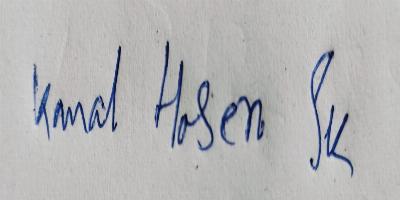 Kamal Hosen Sk